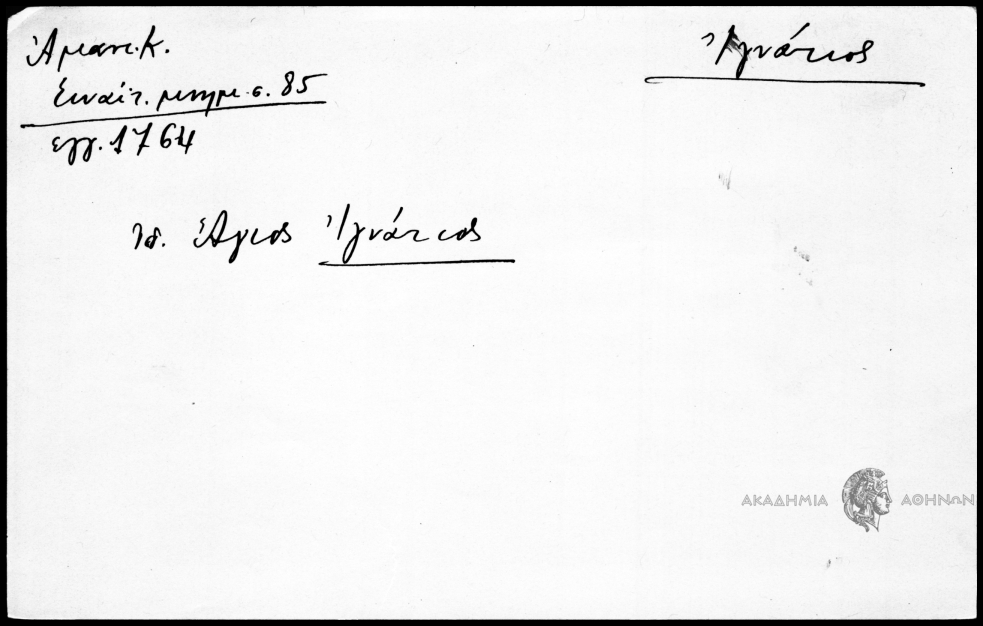 Ἀμαντ. Κ.
Ἰγνάτιος
Σιναϊτ. μνημ. σ. 85
εγγ. 1764
Ἅγιος Ἰγνάτιος
ΑΚΑΔΗΜΙΑ ΑΘΗΝΩΝ